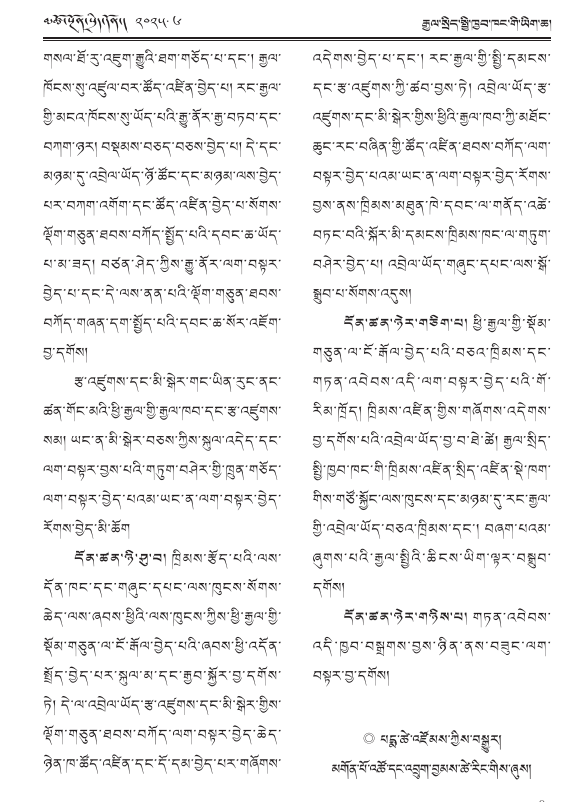 ༢༠༢༥.༦
རྒྱལ་སྲིད་སྤྱི་ཁྱབ་ཁང་གི་ཡིག་ཆ།
གསལ་ཐོ་རུ་འཇུག་རྒྱུའི་ཐག་གཅོད་པ་དང་། རྒྱལ་
ཁོངས་སུ་འཛུལ་བར་ཚོད་འཛིན་བྱེད་པ། རང་རྒྱལ་
གྱི་མངའ་ཁོངས་སུ་ཡོད་པའི་རྒྱུ་ནོར་རྒྱ་བཏབ་དང་
བཀག་ཉར། བསྡམས་བཅད་བཅས་བྱེད་པ། དེ་དང་
མཉམ་དུ་འབྲེལ་ཡོད་ཉོ་ཚོང་དང་མཉམ་ལས་བྱེད་
པར་བཀག་འགོག་དང་ཚོད་འཛིན་བྱེད་པ་སོགས་
ལྡོག་གཅུན་ཐབས་བཀོད་སྤྱོད་པའི་དབང་ཆ་ཡོད་
པ་མ་ཟད། བཙན་ཤེད་ཀྱིས་རྒྱུ་ནོར་ལག་བསྟར་
བྱེད་པ་དང་དེ་ལས་ནན་པའི་ལྡོག་གཅུན་ཐབས་
བཀོད་གཞན་དག་སྤྱོད་པའི་དབང་ཆ་སོར་འཇོག་
བྱ་དགོས།
རྩ་འཛུགས་དང་མི་སྒེར་གང་ཡིན་རུང་ནང་
ཚན་གོང་མའི་ཕྱི་རྒྱལ་གྱི་རྒྱལ་ཁབ་དང་རྩ་འཛུགས་
སམ། ཡང་ན་མི་སྒེར་བཅས་ཀྱིས་སྐུལ་འདེད་དང་
ལག་བསྟར་བྱས་པའི་གཏུག་བཤེར་གྱི་ཁྲུན་གཅོད་
ལག་བསྟར་བྱེད་པའམ་ཡང་ན་ལག་བསྟར་བྱེད་
རོགས་བྱེད་མི་ཆོག
དོན་ཚན་ཉི་ཤུ་བ། ཁྲིམས་རྩོད་པའི་ལས་
དོན་ཁང་དང་གཞུང་དཔང་ལས་ཁུངས་སོགས་
ཆེད་ལས་ཞབས་ཕྱིའི་ལས་ཁུངས་ཀྱིས་ཕྱི་རྒྱལ་གྱི་
སྡོམ་གཅུན་ལ་ངོ་རྒོལ་བྱེད་པའི་ཞབས་ཕྱི་འདོན་
སྤྲོད་བྱེད་པར་སྐུལ་མ་དང་རྒྱབ་སྐྱོར་བྱ་དགོས་
ཏེ། དེ་ལ་འབྲེལ་ཡོད་རྩ་འཛུགས་དང་མི་སྒེར་གྱིས་
ལྡོག་གཅུན་ཐབས་བཀོད་ལག་བསྟར་བྱེད་ཆེད་
ཉེན་ཁ་ཚོད་འཛིན་དང་དོ་དམ་བྱེད་པར་གཞོགས་
འདེགས་བྱེད་པ་དང་། རང་རྒྱལ་གྱི་སྤྱི་དམངས་
དང་རྩ་འཛུགས་ཀྱི་ཚབ་བྱས་ཏེ། འབྲེལ་ཡོད་རྩ་
འཛུགས་དང་མི་སྒེར་གྱིས་ཕྱིའི་རྒྱལ་ཁབ་ཀྱི་མཐོང་
ཆུང་རང་བཞིན་གྱི་ཚོད་འཛིན་ཐབས་བཀོད་ལག་
བསྟར་བྱེད་པའམ་ཡང་ན་ལག་བསྟར་བྱེད་རོགས་
བྱས་ནས་ཁྲིམས་མཐུན་ཁེ་དབང་ལ་གནོད་འཚེ་
བཏང་བའི་སྐོར་མི་དམངས་ཁྲིམས་ཁང་ལ་གཏུག་
བཤེར་བྱེད་པ། འབྲེལ་ཡོད་གཞུང་དཔང་ལས་སྒོ་
སྒྲུབ་པ་སོགས་འདུས།
དོན་ཚན་ཉེར་གཅིག་པ། ཕྱི་རྒྱལ་གྱི་སྡོམ་
གཅུན་ལ་ངོ་རྒོལ་བྱེད་པའི་བཅའ་ཁྲིམས་དང་
གཏན་འབེབས་འདི་ལག་བསྟར་བྱེད་པའི་གོ་
རིམ་ཁྲོད། ཁྲིམས་འཛིན་གྱིས་གཞོགས་འདེགས་
བྱ་དགོས་པའི་འབྲེལ་ཡོད་བྱ་བ་ཐེ་ཚེ། རྒྱལ་སྲིད་
སྤྱི་ཁྱབ་ཁང་གི་ཁྲིམས་འཛིན་སྲིད་འཛིན་སྡེ་ཁག་
གིས་གཙོ་སྐྱོང་ལས་ཁུངས་དང་མཉམ་དུ་རང་རྒྱལ་
གྱི་འབྲེལ་ཡོད་བཅའ་ཁྲིམས་དང་། བཞག་པའམ་
ཞུགས་པའི་རྒྱལ་སྤྱིའི་ཆིངས་ཡིག་ལྟར་བསྒྲུབ་
དགོས།
དོན་ཚན་ཉེར་གཉིས་པ། གཏན་འབེབས་
འདི་ཁྱབ་བསྒྲགས་བྱས་ཉིན་ནས་བཟུང་ལག་
བསྟར་བྱ་དགོས།
◎ པདྨ་ཚེ་འཛོམས་ཀྱིས་བསྒྱུར།
མགོན་པོ་འཚོ་དང་འབྲུག་བྱམས་ཚེ་རིང་གིས་ཞུས།